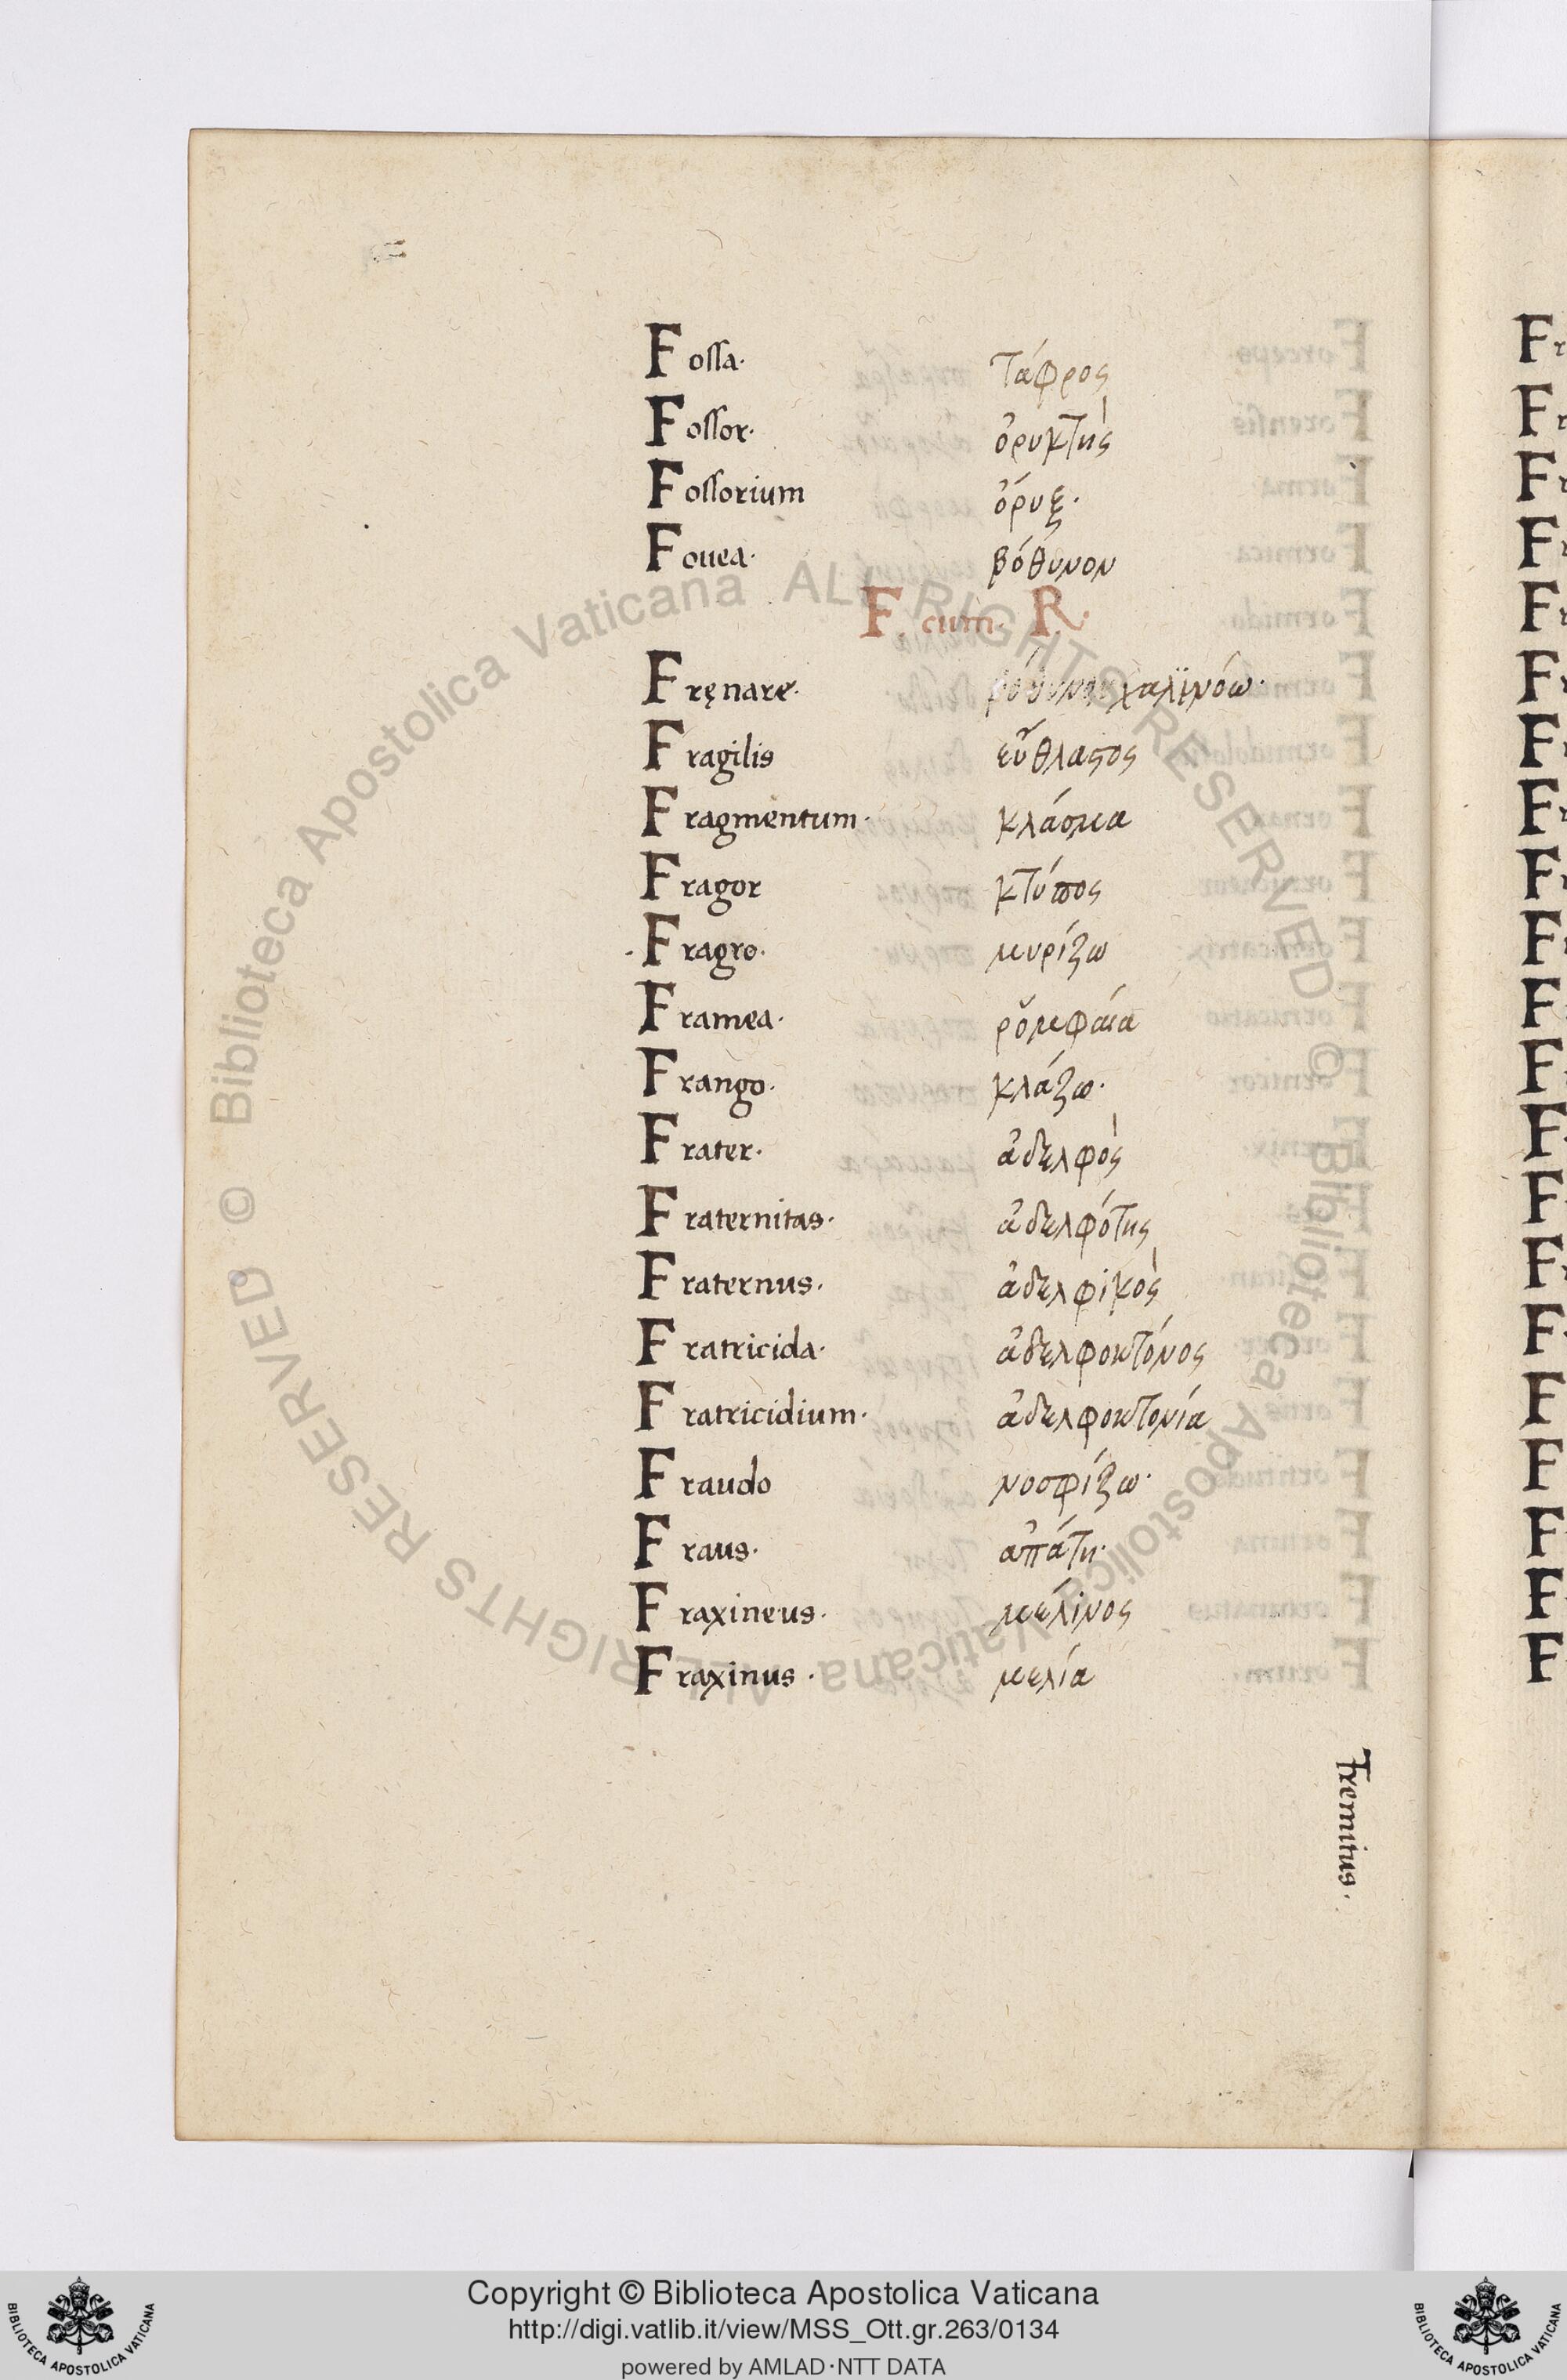 Fossa. τάφρος
Fossor. ὀρυκτὴς
Fossorium ὄρυξ.
Fouea. βόθυνον
F. cum. R.
Fręnare. βόθυνον χαλϊνόω.
Fragilis εὔθλαστος
Fragmentum. κλάσμα
Fragor κτύπος
Fragro. μυρίζω
Framea. ῥομφαία
Frango. κλάζω.
Frater. ἀδελφὸς
Fraternitas. ἀδελφότης
Fraternus. ἀδελφικὸς
Fratricida. ἀδελφοκτόνος
Fratricidium. ἀδελφοκτονία
Fraudo νοσφίζω.
Fraus. ἀπάτη.
Fraxineus. μέλινος
Fraxinus. μελία
Fremitus.
© Biblioteca Apostolica Vaticana ALL RIGHTS RESERVED © Biblioteca Apostolica Vaticana ALL RIGHTS RESERVED
Copyright © Biblioteca Apostolica Vaticana
http://digi.vatlib.it/view/MSS_Ott.gr.263/0134
powered by AMLAD·NTT DATA
BIBLIOTECA APOSTOLICA VATICANA
BIBLIOTECA APOSTOLICA VATICANA